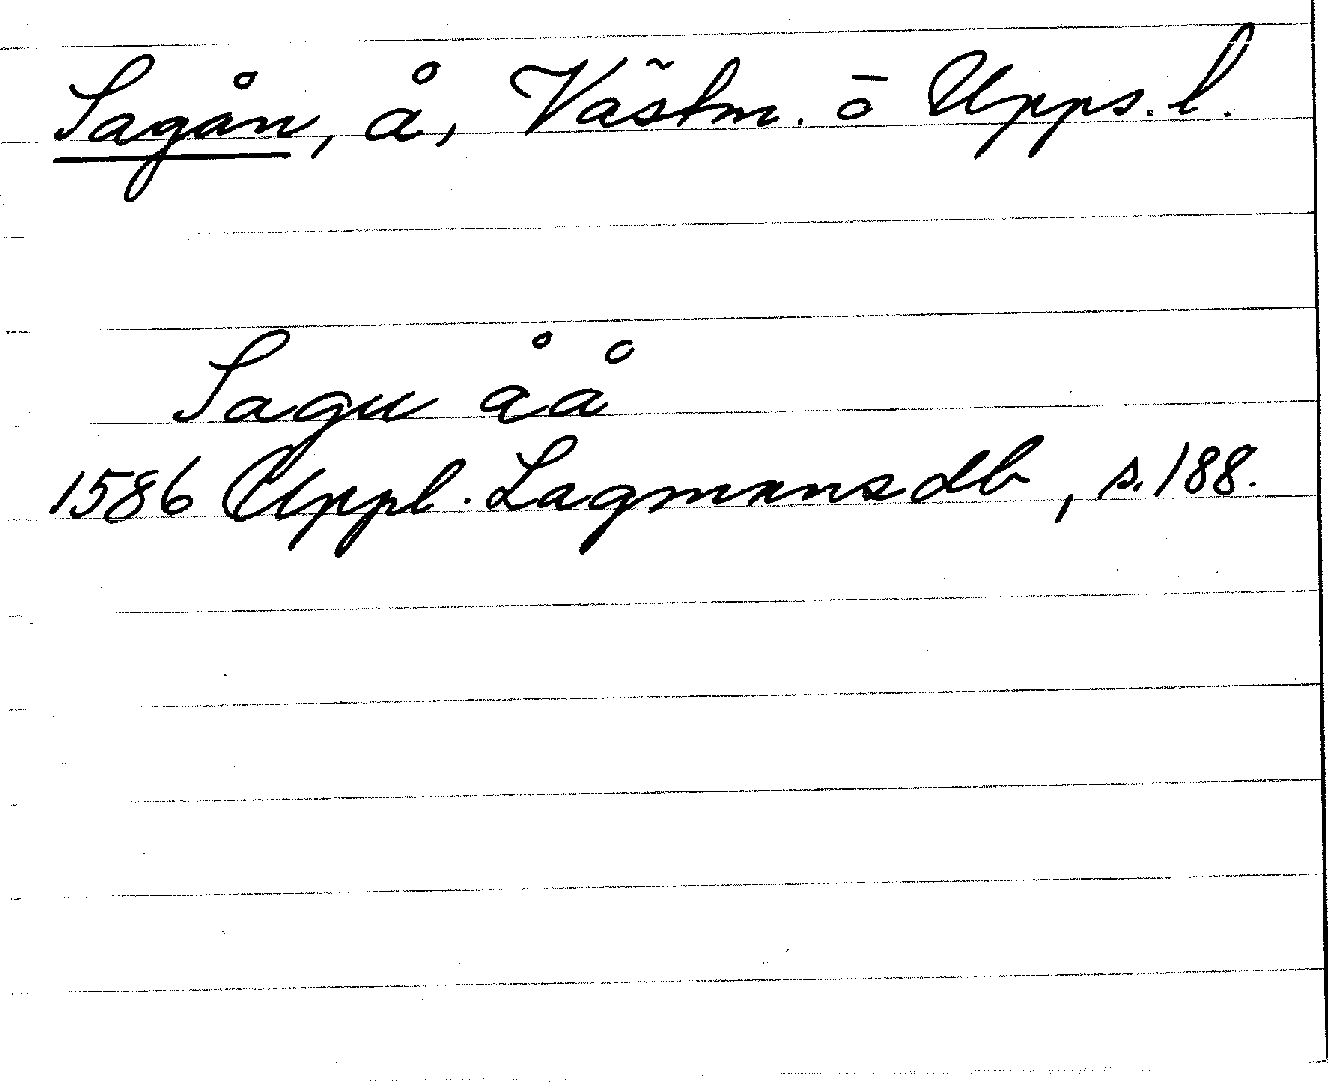 Sagån, å, Västm. o Upps. l.
Sagu åå
1586 Uppl. Lagmansdb, s. 188.